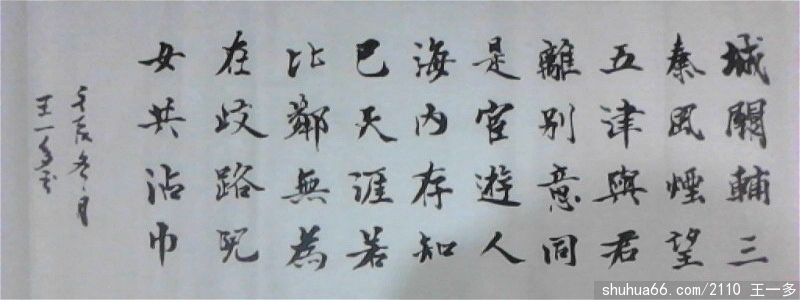 城闕輔三
秦風煙望
五津與君
離別意同
是宦遊人
海內存知
己天涯若
比鄰無為
在歧路兒
女共沾巾
冬月
王一多
shuhua66.com/2110 王一多